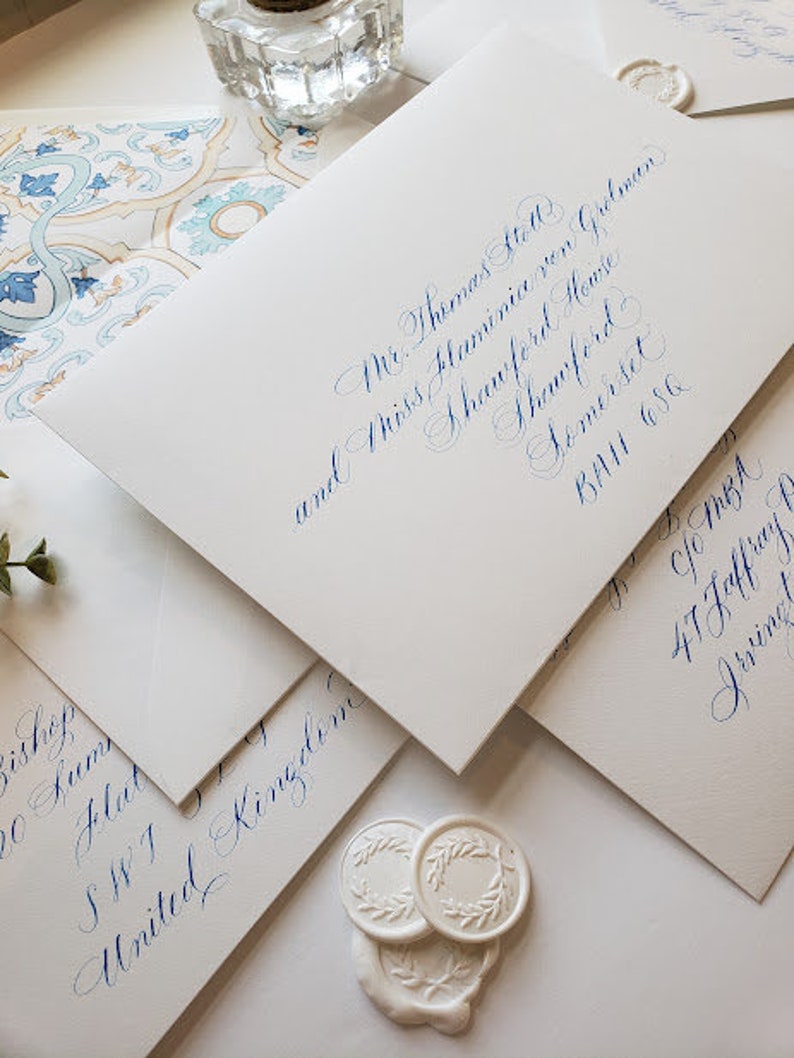 Mr. Thomas Stott
and Miss Flaminia von Grolman
Shawford House
Shawford
Somerset
BA11 6SQ
c/o MBA
47 Jaffray
Bishop
Flat
SW7
United Kingdom